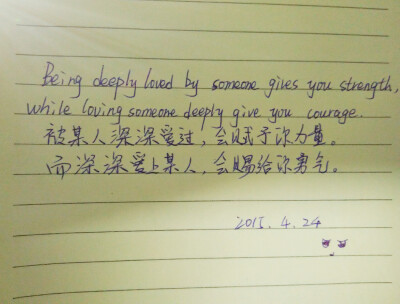 Being deeply loved by someone gives you strength,
while loving someone deeply give you courage.
被某人深深爱过，会赋予你力量。
而深深爱上某人，会赐给你勇气。
2015.4.24